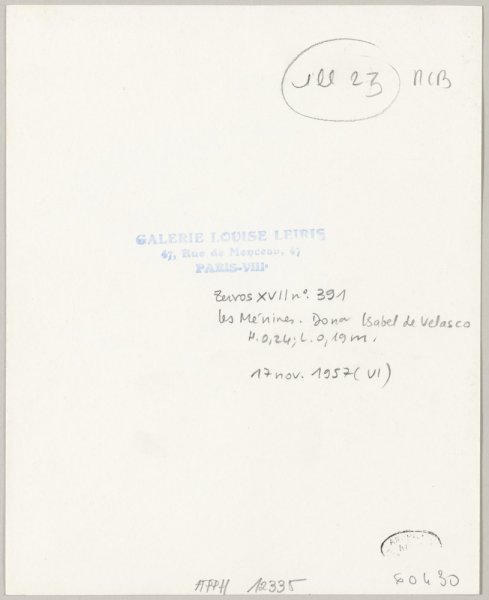 ill 23 MCB
GALERIE LOUISE LEIRIS
47, Rue de Monceau, 47
PARIS-VIIIe
Zervos XVII n°. 391
les Ménines. Dona Isabel de Velasco
H. 0,24; L. 0,19 m.
17 nov. 1957 (VI)
APPH 12335